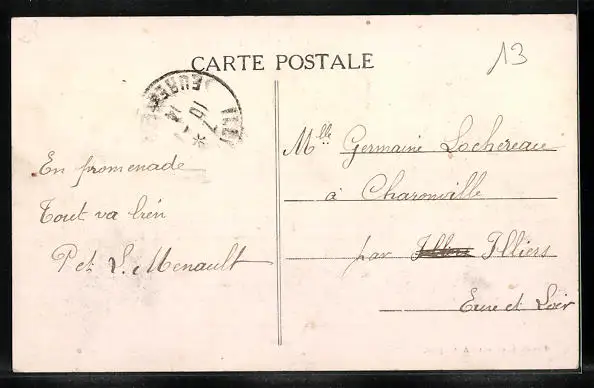 CARTE POSTALE
13
En promenade
Tout va bien
P et L. Menault
Mlle Germaine Lochereau
à Charonville
par Illiers Illiers
Eure et Loir